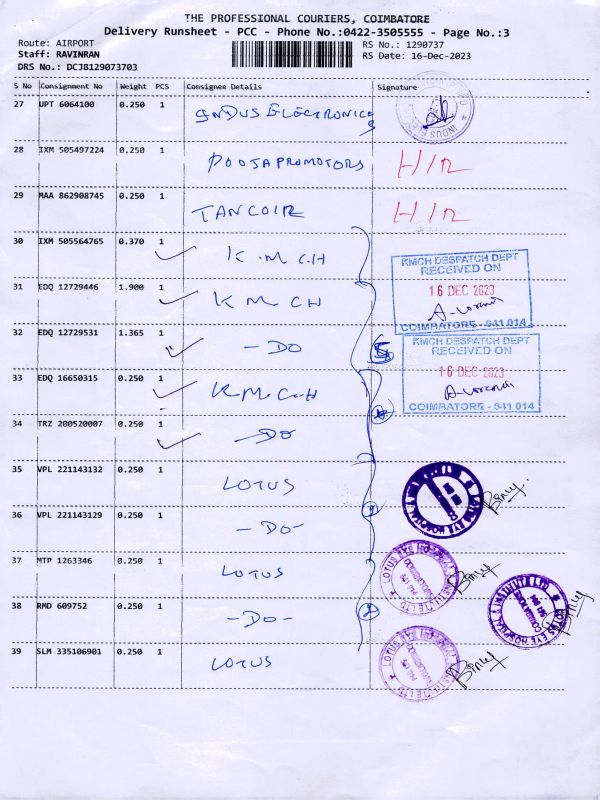 THE PROFESSIONAL COURIERS, COIMBATORE
Delivery Runsheet - PCC - Phone No.:0422-3505555 - Page No.:3
Route: AIRPORT
RS No.: 1290737
Staff: RAVINRAN
RS Date: 16-Dec-2023
DRS No.: DCJB129073703
S No Consignment No Weight PCS Consignee Details Signature
27 UPT 6064100 0.250 1 INDUS ELECTRONICS
28 IXM 505497224 0.250 1 POOJAPROMOTORS H/R
29 MAA 862908745 0.250 1 TANCOIR H/R
30 IXM 505564765 0.370 1 K.M C.H
KMCH DESPATCH DEPT
RECEIVED ON
16 DEC 2023
COIMBATORE - 641 014
31 EDQ 12729446 1.900 1 K M CH
32 EDQ 12729531 1.365 1 -DO
KMCH DESPATCH DEPT
RECEIVED ON
16 DEC 2023
COIMBATORE - 641 014
33 EDQ 16650315 0.250 1 K M C-H
34 TRZ 200520007 0.250 1 -DO
35 VPL 221143132 0.250 1 LOTUS
36 VPL 221143129 0.250 1 -DO-
37 MTP 1263346 0.250 1 LOTUS
38 RMD 609752 0.250 1 -DO-
39 SLM 335106901 0.250 1 LOTUS
LOTUS EYE HOSPITAL & INSTITUTE LTD
COIMBATORE
641 014